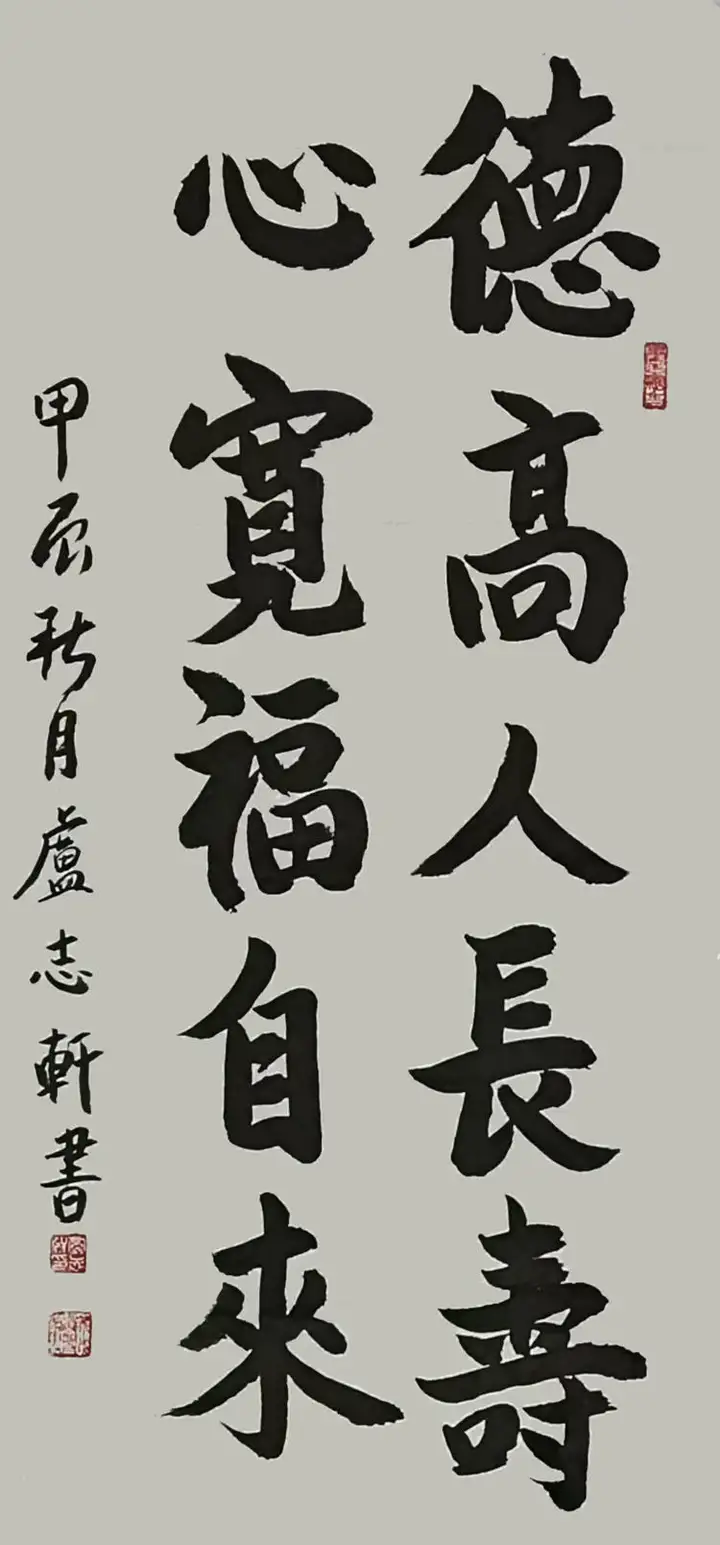 德高人長壽
心寬福自來
甲辰秋月盧志軒書